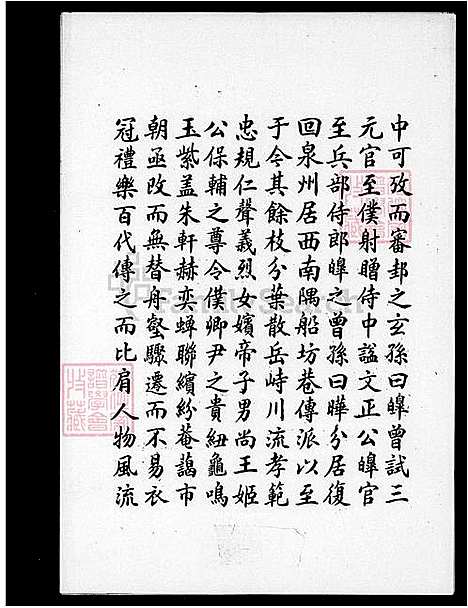 中可攷而審邽之玄孫曰皞曾試三
元官至僕射贈侍中謚文正公皞官
至兵部侍郎皞之曾孫曰曄分居復
回泉州居西南隅船坊巷傳派以至
于今其餘枝分葉散岳峙川流孝範
忠規仁聲義烈女嬪帝子男尚王姬
公保輔之尊令僕卿尹之貴紐龜鳴
玉紫盖朱軒赫奕蟬聯繽紛菴藹市
朝亟改而無替舟壑驟遷而不易衣
冠禮樂百代傳之而比肩人物風流
FamilySearch